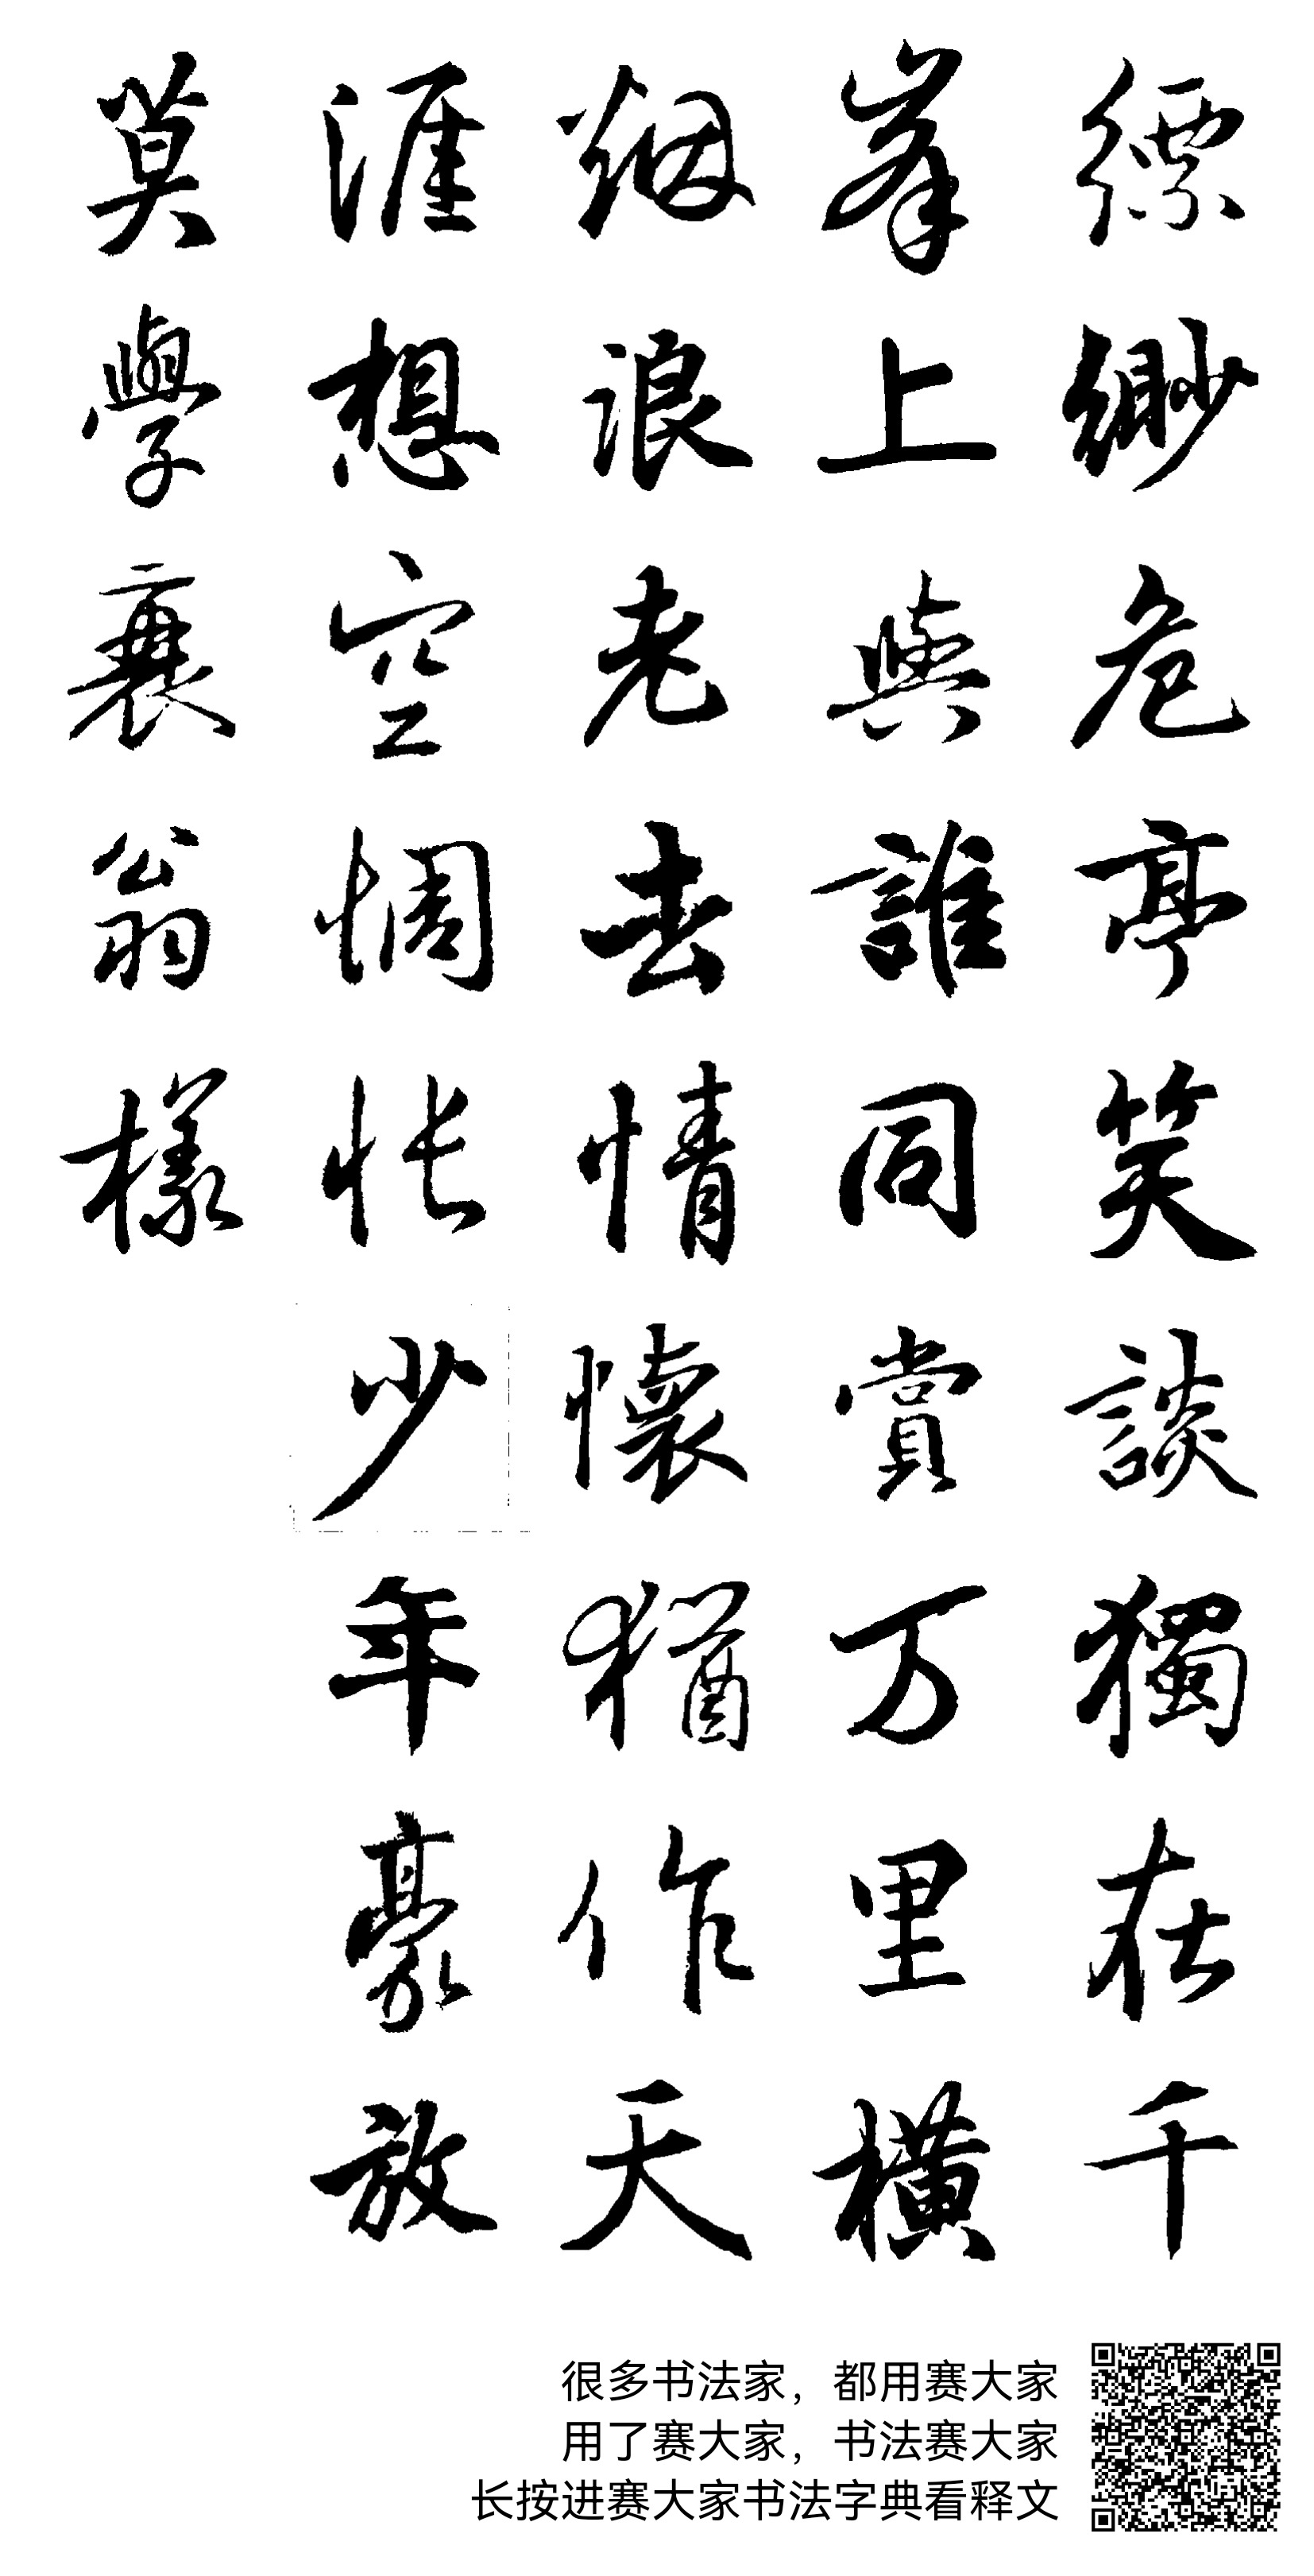 縹緲危亭笑談獨在千
峯上與誰同賞万里橫
烟浪老去情懷猶作天
涯想空惆悵少年豪放
莫學衰翁樣
很多书法家，都用赛大家
用了赛大家，书法赛大家
长按进赛大家书法字典看释文